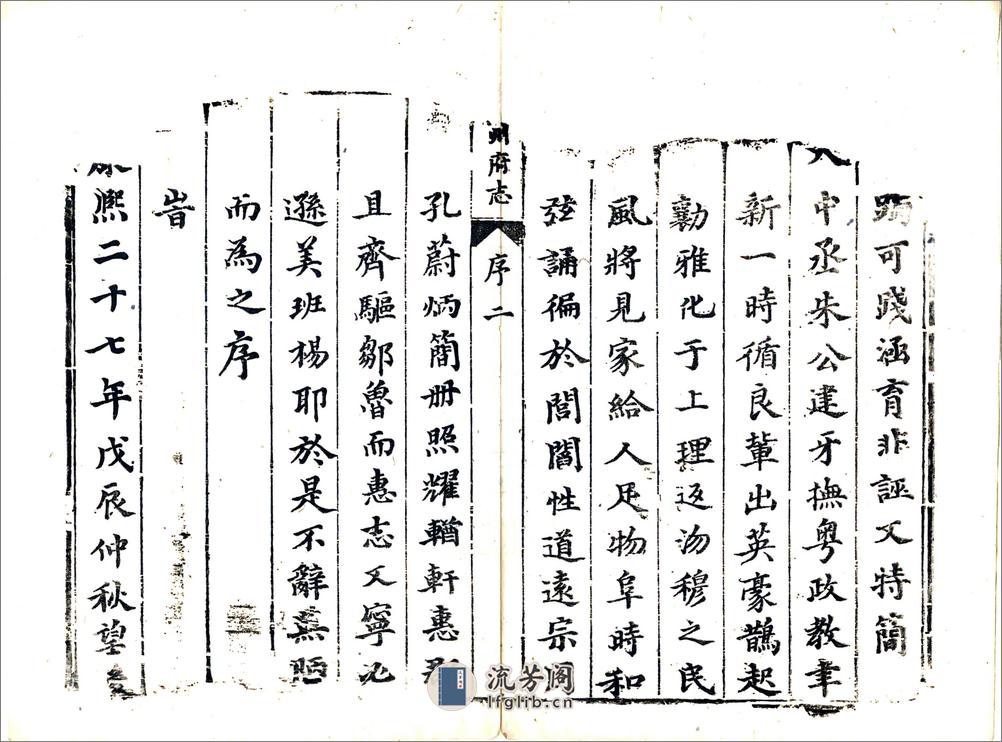 可踐涵育非誣又特簡
大中丞朱公建牙撫粤政教聿
新一時循良軰出英豪鵲起
勷雅化于上理返沕穆之民
風將見家給人足物阜時和
弦誦徧於閭閻性道遠宗
州府志
序二
孔蔚炳簡册照耀輶軒惠
且齊驅鄒魯而惠志又寧
遜美班楊耶於是不辭蕪陋
而為之序
旹
康熈二十七年戊辰仲秋望
流芳阁
lfglib.cn